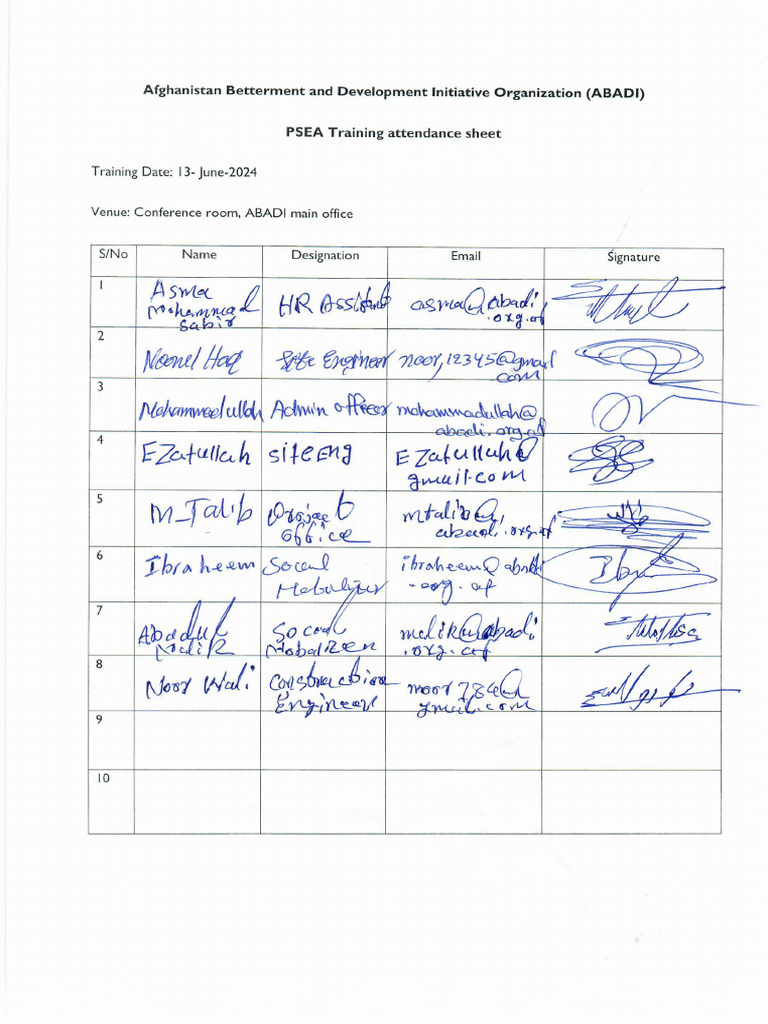 Afghanistan Betterment and Development Initiative Organization (ABADI)
PSEA Training attendance sheet
Training Date: 13- June-2024
Venue: Conference room, ABADI main office
S/No Name Designation Email Signature
1 Asma Mohammad Sabir HR Assistant asma@abadi.org.af
2 Noorul Haq Site Engineer noor,12345@gmail com
3 Mohammadullah Admin officer mohammadullah@abadi.org.af
4 EZatullah siteEng EZatullah@gmail.com
5 M_Talib Project office mtalib@abadi.org.af
6 Ibraheem Socual Mobulizer ibraheem@abadi.org.af
7 Abadul Malik Socoal Mobalizeen malik@abadi.org.af
8 Noor Wali Construction Engineer noor784@gmail.com
9
10